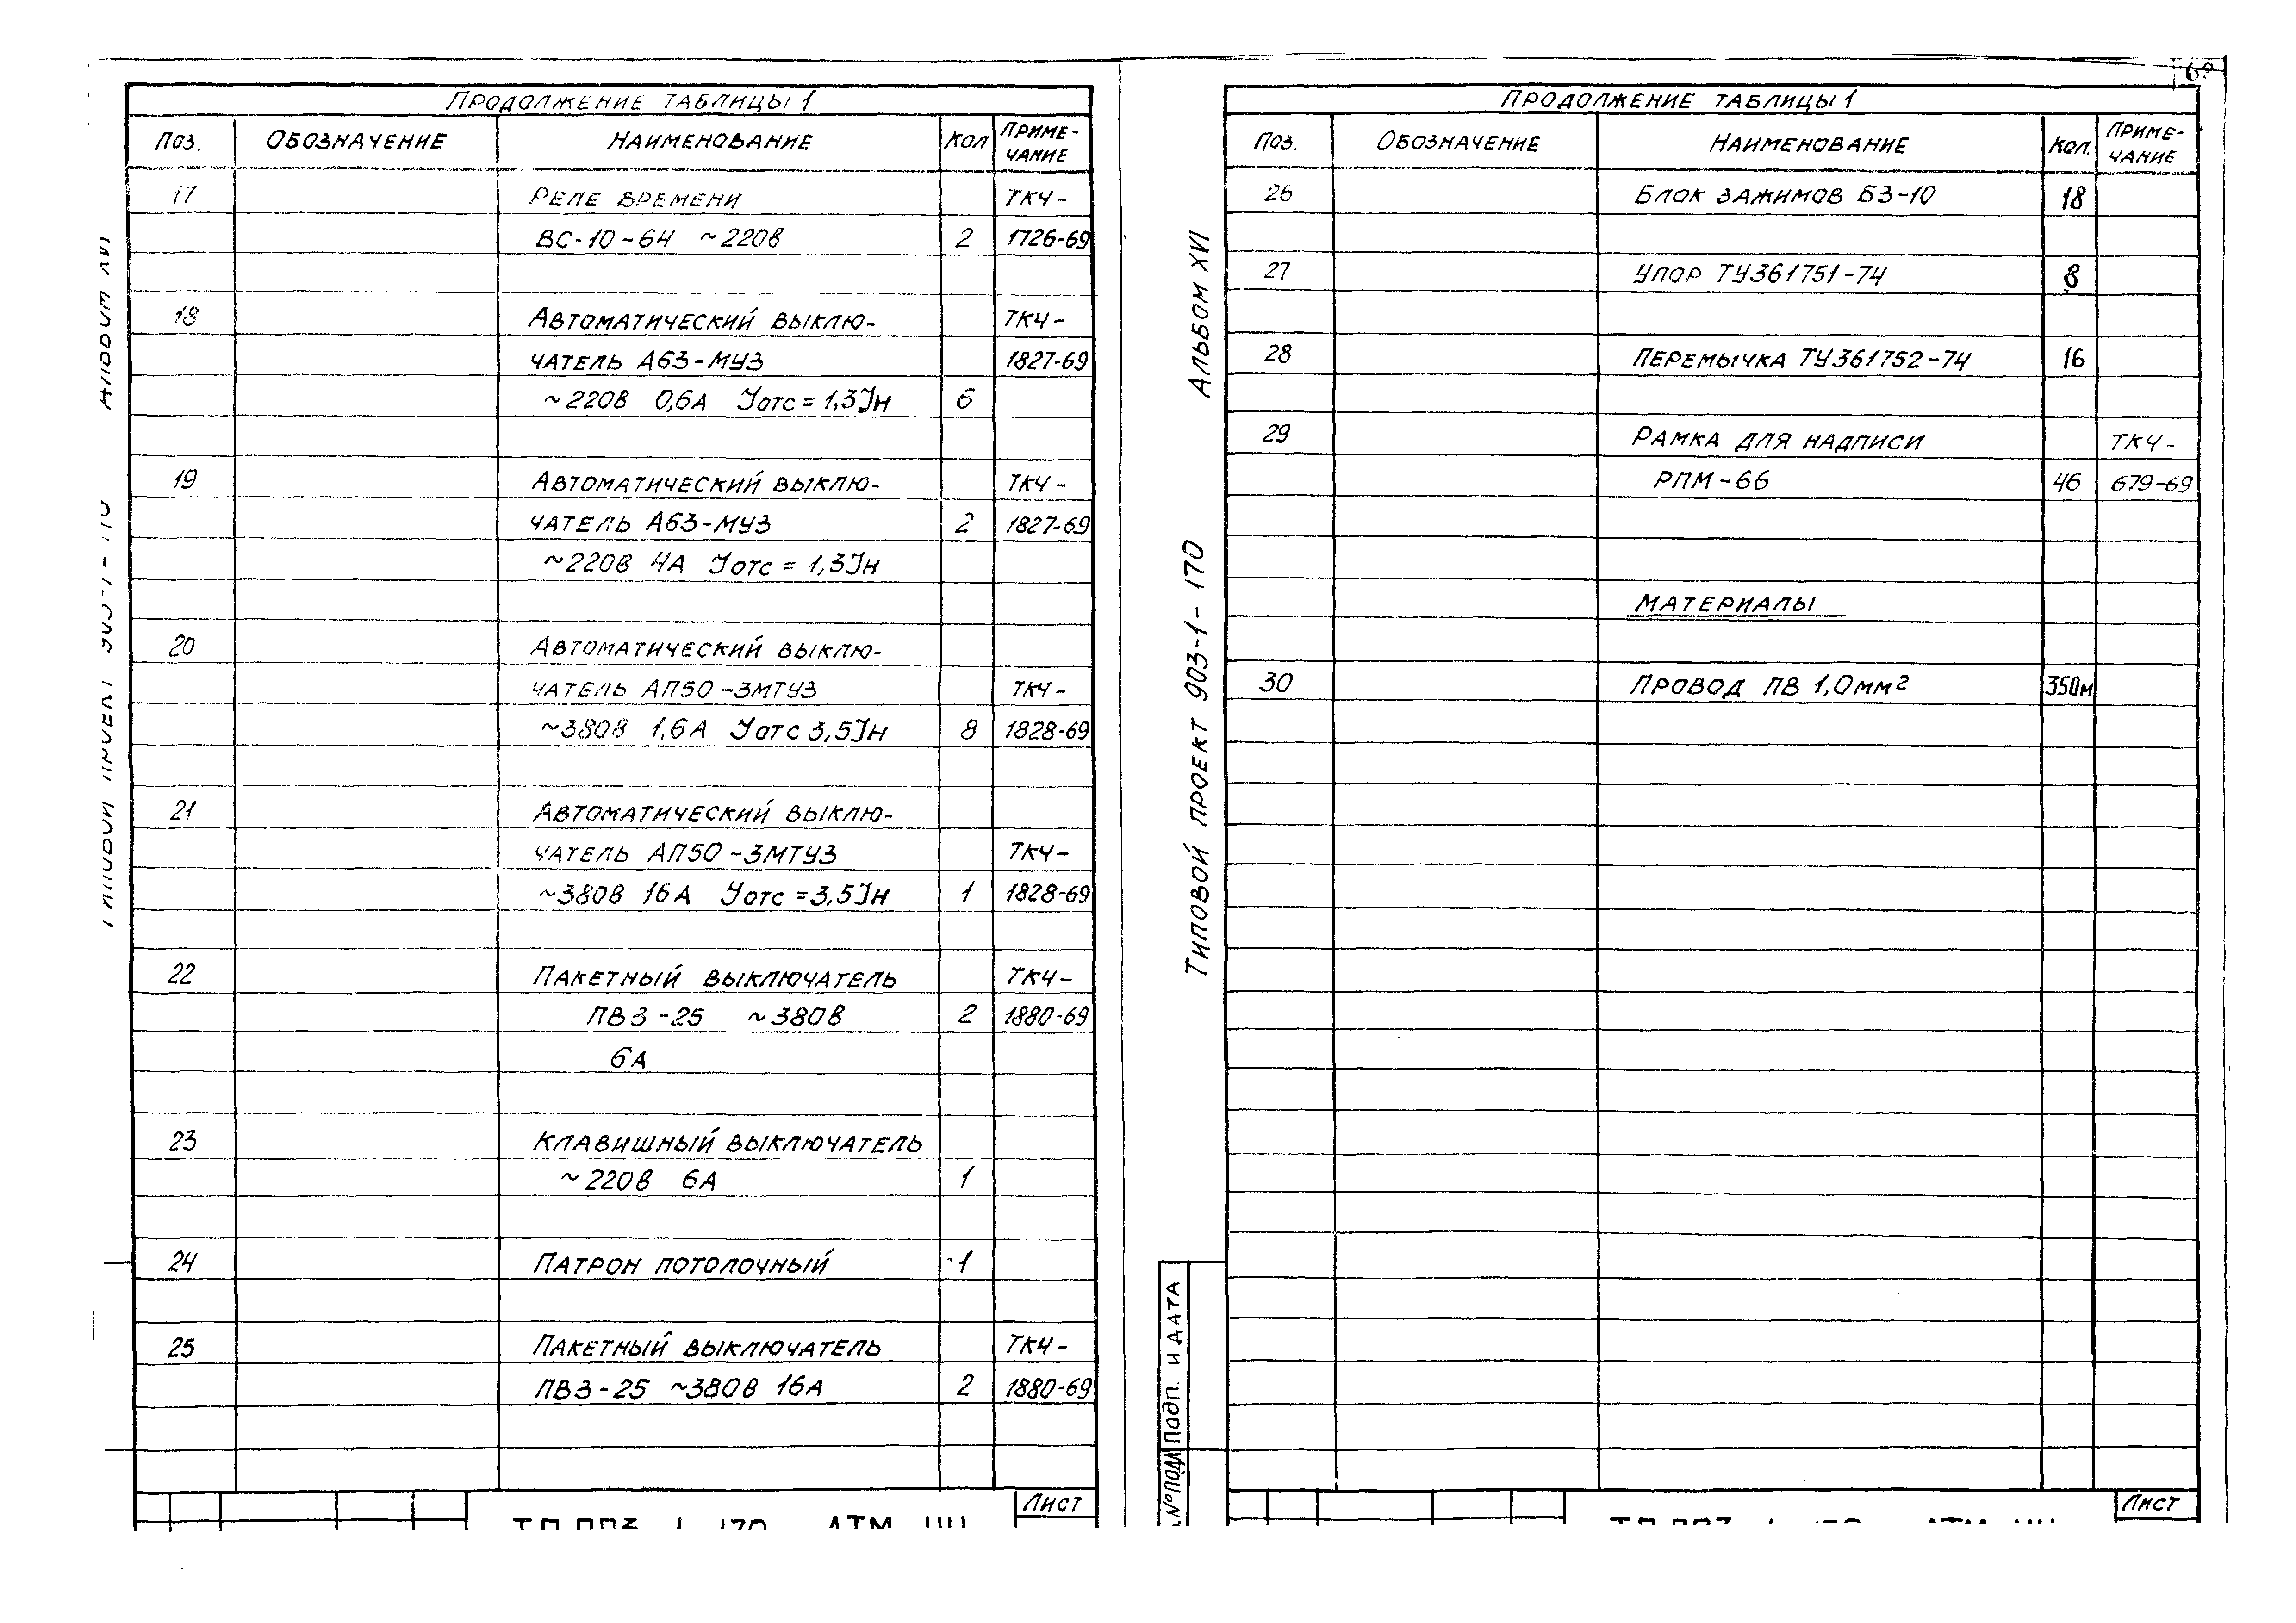 Продолжение таблицы 1
Поз. Обозначение Наименование Кол Примечание
17 Реле времени ТКЧ-
ВС-10-64 ~220В 2 1726-69
18 Автоматический выклю- ТКЧ-
чатель А63-МУ3 1827-69
~220В 0,6А Jотс = 1,3Jн 6
19 Автоматический выклю- ТКЧ-
чатель А63-МУ3 2 1827-69
~220В 4А Jотс = 1,3Jн
20 Автоматический выклю-
чатель АП50-3МТУ3 ТКЧ-
~380В 1,6А Jотс 3,5Jн 8 1828-69
21 Автоматический выклю-
чатель АП50-3МТУ3 ТКЧ-
~380В 16А Jотс = 3,5Jн 1 1828-69
22 Пакетный выключатель ТКЧ-
ПВ3-25 ~380В 2 1880-69
6А
23 Клавишный выключатель
~220В 6А 1
24 Патрон потолочный 1
25 Пакетный выключатель ТКЧ-
ПВ3-25 ~380В 16А 2 1880-69
Лист
Альбом XVI
Типовой проект 903-1-170
Подп. и дата
№ подл
Продолжение таблицы 1
Поз. Обозначение Наименование Кол. Примечание
26 Блок зажимов БЗ-10 18
27 Упор ТУ361751-74 8
28 Перемычка ТУ361752-74 16
29 Рамка для надписи ТКЧ-
РПМ-66 46 679-69
Материалы
30 Провод ПВ 1,0мм² 350м
Лист